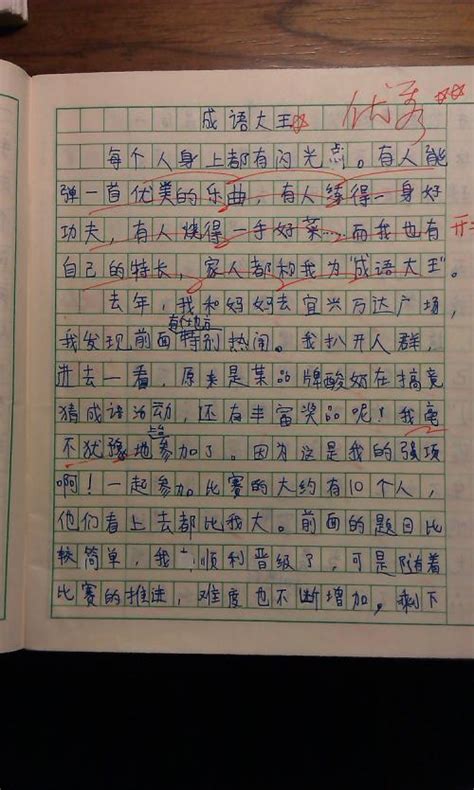 成语大王
优秀
每个人身上都有闪光点。有人能
弹一首优美的乐曲，有人练得一身好
功夫，有人烧得一手好菜……而我也有
自己的特长，家人都称我为“成语大王”。
去年，我和妈妈去宜兴万达广场，
我发现前面有个地方特别热闹。我扒开人群，
进去一看，原来是某品牌酸奶在搞竞
猜成语活动，还有丰富奖品呢！我毫
不犹豫地参加了。因为这是我的强项
啊！一起参加比赛的大约有10个人，
他们看上去都比我大。前面的题目比
较简单，我顺利晋级了，可是随着
比赛的推进，难度也不断增加，剩下